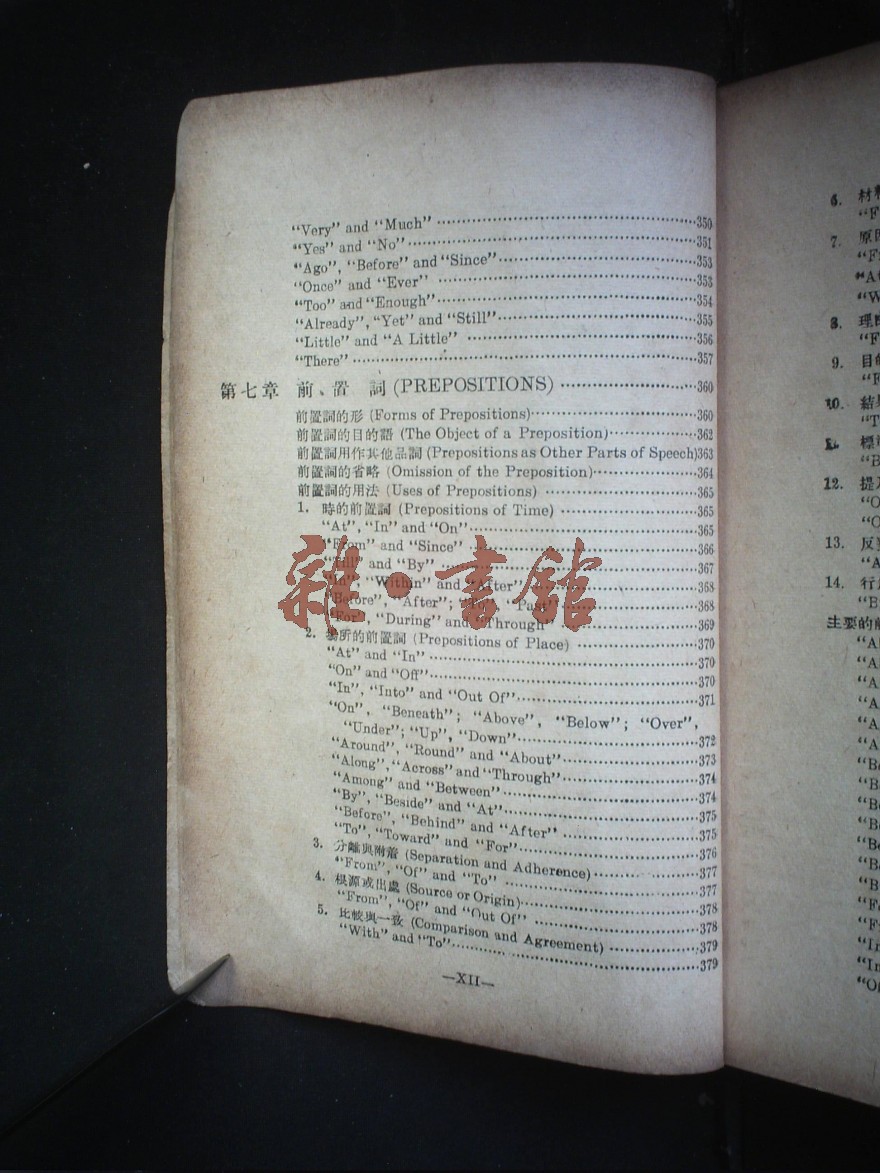 "Very" and "Much" ………350
"Yes" and "No" ………351
"Ago", "Before" and "Since" ………353
"Once" and "Ever" ………353
"Too" and "Enough" ………354
"Already", "Yet" and "Still" ………355
"Little" and "A Little" ………356
"There" ………357
第七章 前、置 詞 (PREPOSITIONS) ………360
前置詞的形 (Forms of Prepositions) ………360
前置詞的目的語 (The Object of a Preposition) ………362
前置詞用作其他品詞 (Prepositions as Other Parts of Speech)363
前置詞的省略 (Omission of the Preposition) ………364
前置詞的用法 (Uses of Prepositions) ………365
1. 時的前置詞 (Prepositions of Time) ………365
"At", "In" and "On" ………365
"From" and "Since" ………366
"Till" and "By" ………367
"In", "Within" and "After" ………368
"Before", "After"; "To", "Past" ………368
"For", "During" and "Through" ………369
雜·書館
2. 場所的前置詞 (Prepositions of Place) ………370
"At" and "In" ………370
"On" and "Off" ………370
"In", "Into" and "Out Of" ………371
"On", "Beneath"; "Above", "Below"; "Over",
"Under"; "Up", "Down" ………372
"Around", "Round" and "About" ………373
"Along", "Across" and "Through" ………374
"Among" and "Between" ………374
"By", "Beside" and "At" ………375
"Before", "Behind" and "After" ………375
"To", "Toward" and "For" ………376
3. 分離與附着 (Separation and Adherence) ………377
"From", "Of" and "To" ………377
4. 根源或出處 (Source or Origin) ………378
"From", "Of" and "Out Of" ………378
5. 比較與一致 (Comparison and Agreement) ………379
"With" and "To" ………379
—XII—
6. 材料
"F
7. 原因
"F
"At
"W
8. 理由
"F
9. 目的
"F
10. 結果
"T
標準
"B
12. 提及
"O
"O
13. 反對
"A
14. 行
"B
主要的前
"A
"A
"A
"A
"A
"A
"Be
"Be
"Be
"Be
"Be
"Be
"B
"Fo
"F
"In
"In
"Of